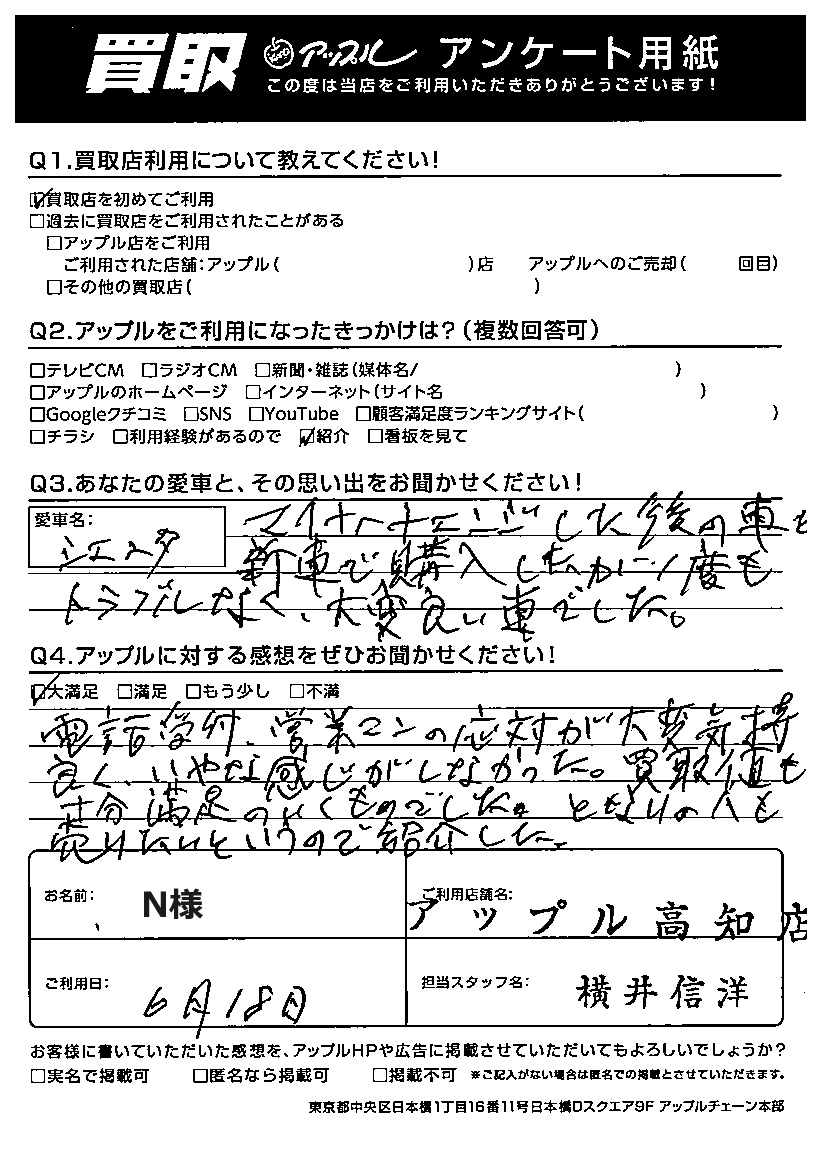 買取 アップル アンケート用紙
この度は当店をご利用いただきありがとうございます!
Q1.買取店利用について教えてください!
☑買取店を初めてご利用
□過去に買取店をご利用されたことがある
□アップル店をご利用
ご利用された店舗:アップル( )店 アップルへのご売却( 回目)
□その他の買取店( )
Q2.アップルをご利用になったきっかけは?(複数回答可)
□テレビCM □ラジオCM □新聞・雑誌(媒体名/ )
□アップルのホームページ □インターネット(サイト名 )
□Googleクチコミ □SNS □YouTube □顧客満足度ランキングサイト( )
□チラシ □利用経験があるので ☑紹介 □看板を見て
Q3.あなたの愛車と、その思い出をお聞かせください!
愛車名:
シエンタ
マイナーチェンジした後の車を
新車で購入したが1度も
トラブルなく、大変良い車でした。
Q4.アップルに対する感想をぜひお聞かせください!
☑大満足 □満足 □もう少し □不満
電話受付、営業マンの応対が大変気持
良く、いやな感じがしなかった。買取値も
十分満足のいくものでした。となりの人も
売りたいというので紹介した。
お名前: N様
ご利用店舗名:
アップル高知店
ご利用日: 6月18日
担当スタッフ名: 横井信洋
お客様に書いていただいた感想を、アップルHPや広告に掲載させていただいてもよろしいでしょうか?
□実名で掲載可 □匿名なら掲載可 □掲載不可 ※ご記入がない場合は匿名での掲載とさせていただきます。
東京都中央区日本橋1丁目16番11号日本橋Dスクエア9F アップルチェーン本部